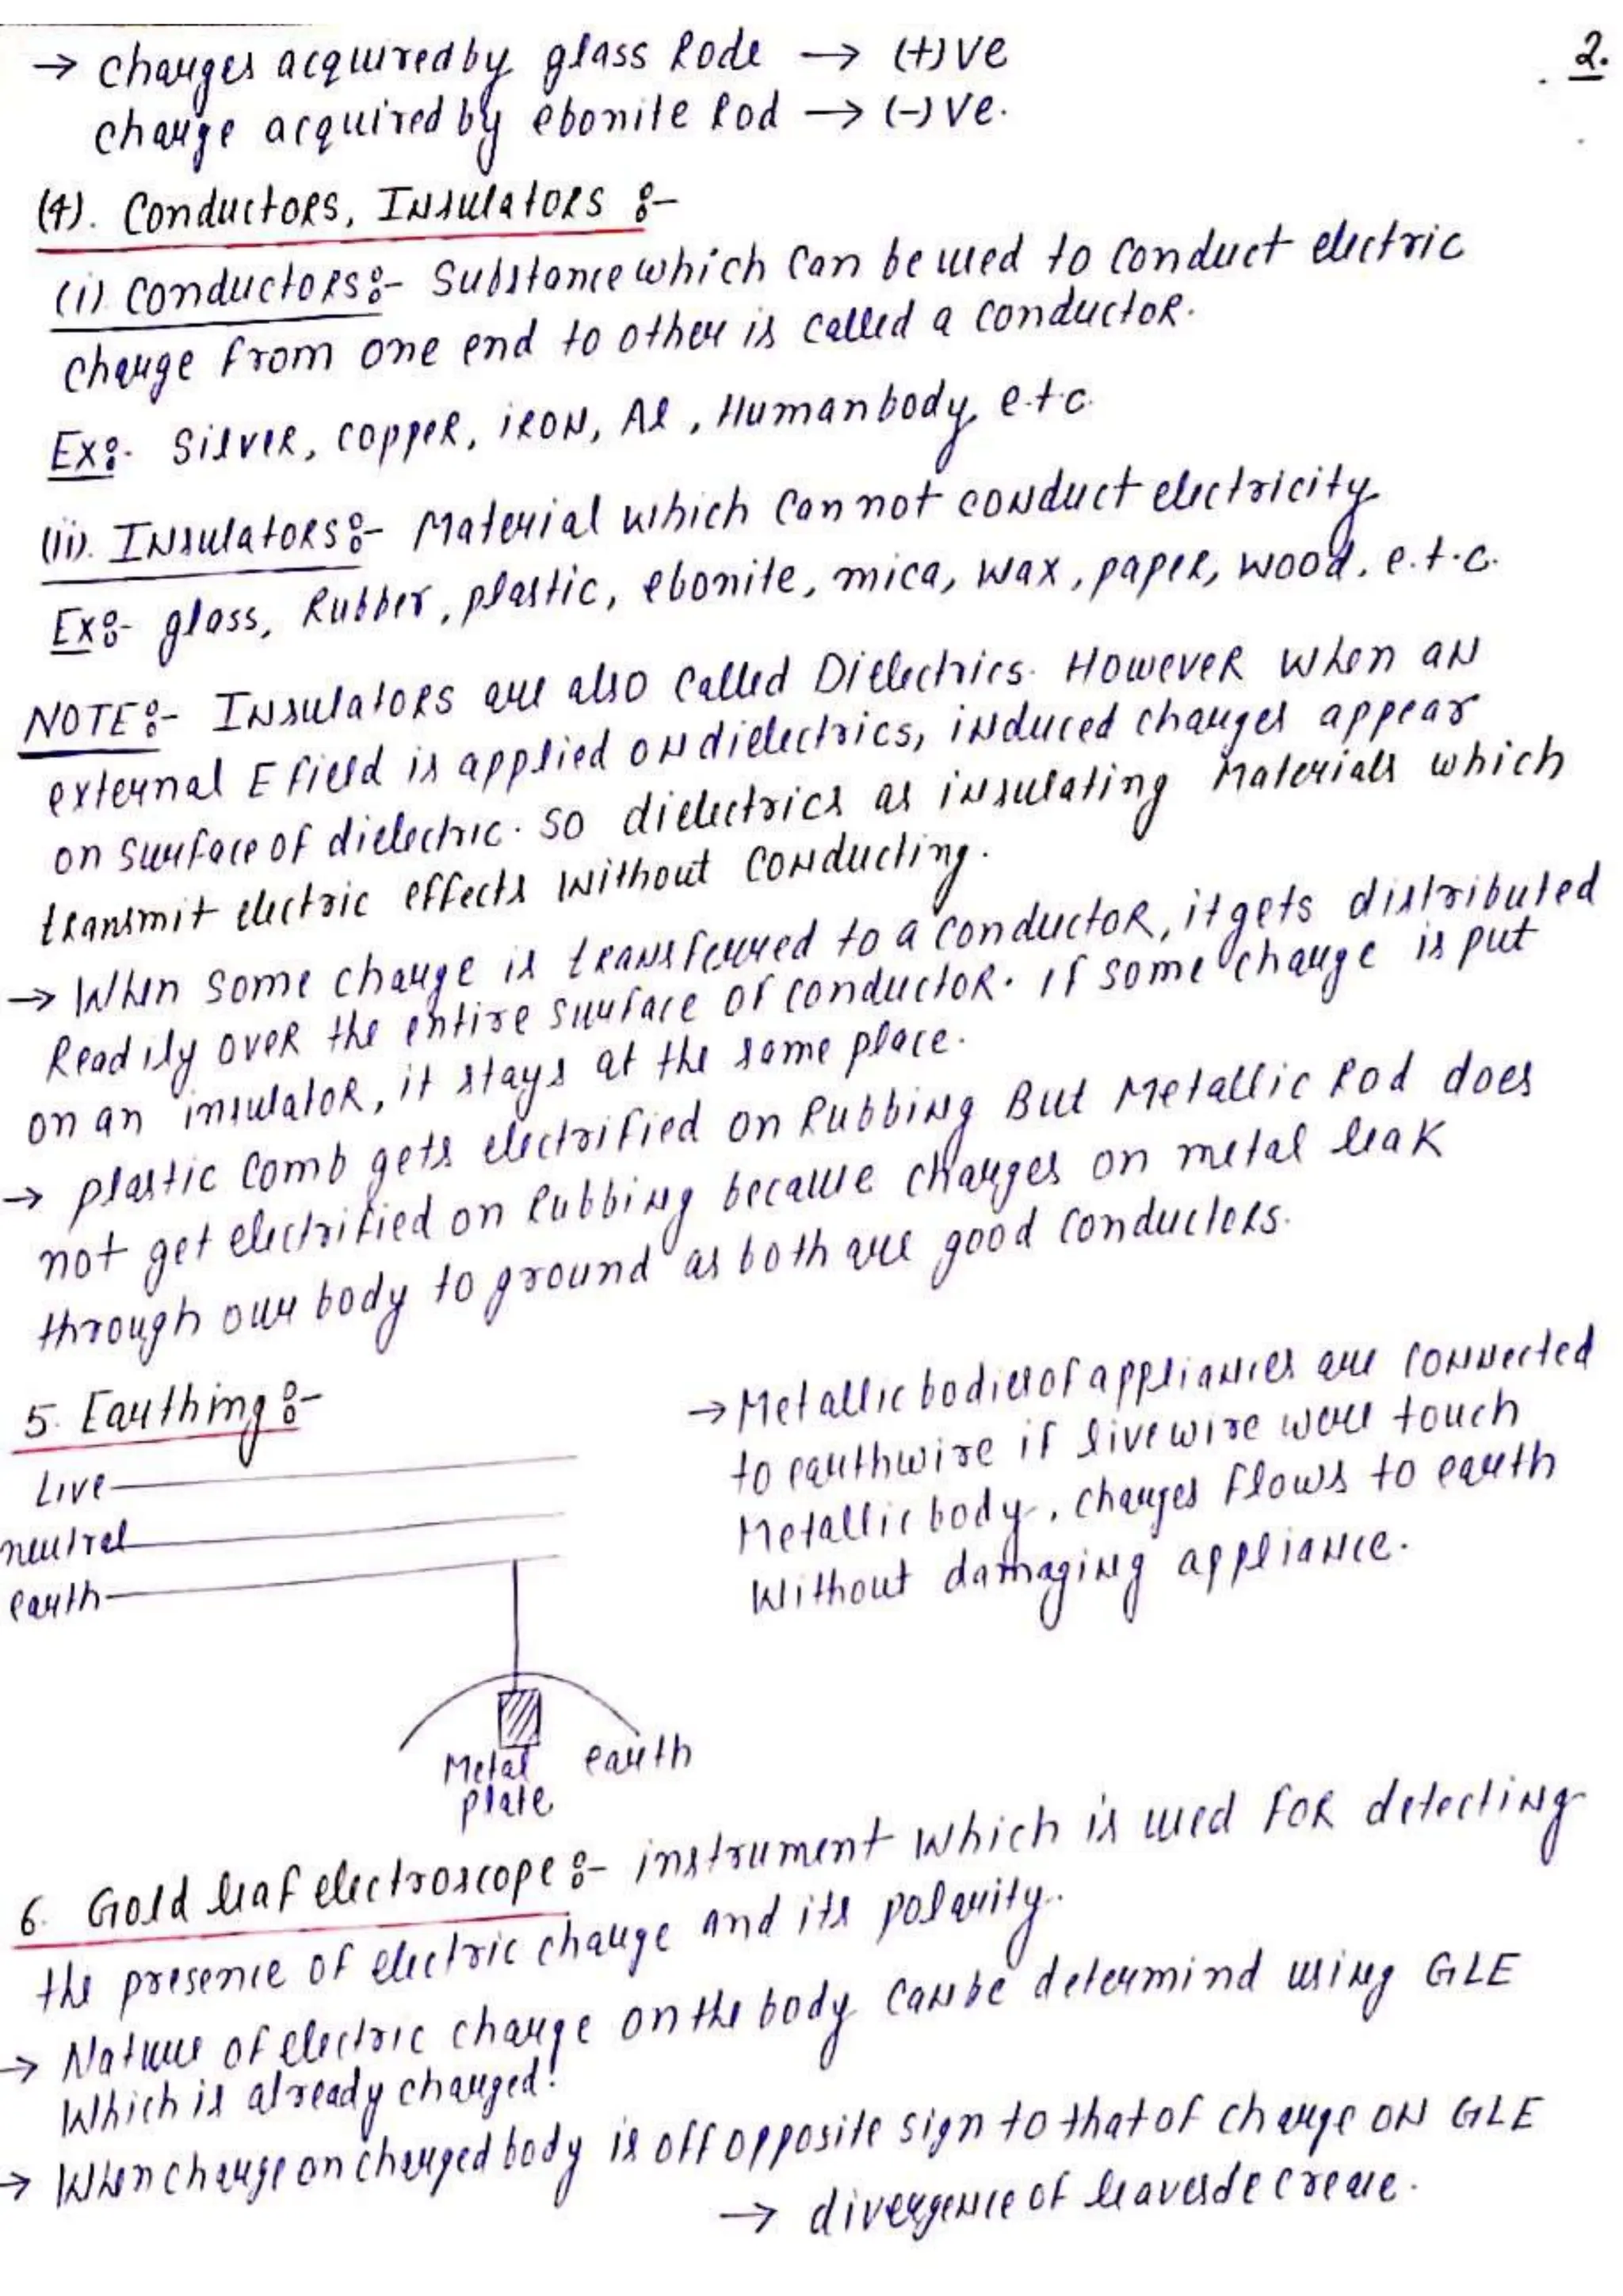 → charges acquired by glass Rode → (+)ve
2.
charge acquired by ebonite Rod → (-)ve.
(4). Conductors, Insulators :-
(i) Conductors:- Substance which can be used to conduct electric
charge from one end to other is called a conductor.
Ex:- Silver, copper, iron, Al, Humanbody, e.t.c.
(ii). Insulators:- Material which can not conduct electricity
Ex:- glass, Rubber, plastic, ebonite, mica, wax, paper, wood, e.t.c.
NOTE:- Insulators are also called Dielectrics. However when an
external E field is applied on dielectrics, induced charges appear
on surface of dielectric. so dielectrics as insulating Materials which
transmit electric effects without conducting.
→ When some charge is transferred to a conductor, it gets distributed
Readily over the entire surface of conductor. if some charge is put
on an insulator, it stays at the same place.
→ plastic comb gets electrified on Rubbing But Metallic Rod does
not get electrified on Rubbing because charges on metal leak
through our body to ground as both are good conductors.
5. Earthing :-
Live
neutral
earth
Metal
plate
earth
→ Metallic bodies of appliances are connected
to earthwire if livewire were touch
Metallic body, charges flows to earth
without damaging appliance.
6. Gold leaf electroscope :- instrument which is used for detecting
the presence of electric charge and its polarity.
→ Nature of electric charge on the body can be determind using GLE
which is already charged.
→ When charge on charged body is off opposite sign to that of charge on GLE
→ divergence of leaves decrease.